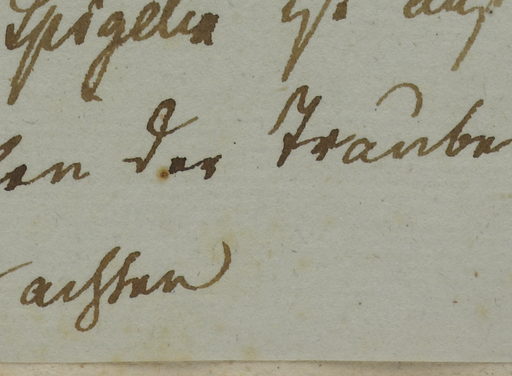 Spigelia ist auf
en der Traube
achsten